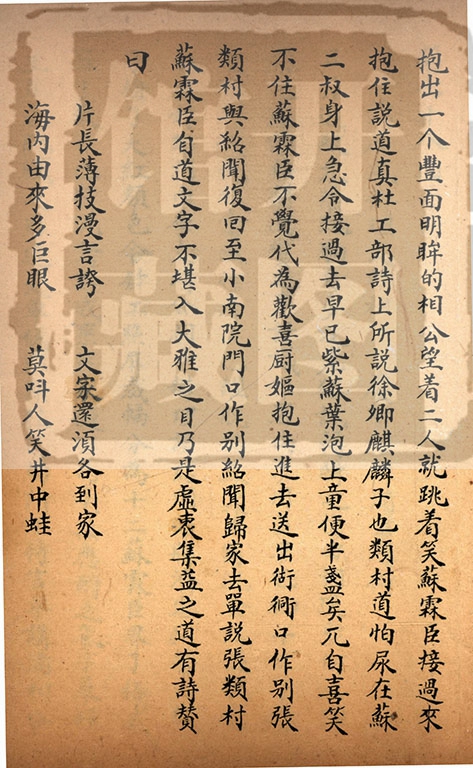 抱出一个豐面明眸的相公望着二人就跳着笑蘇霖臣接過來
抱住說道真杜工部詩上所說徐卿麒麟子也類村道怕尿在蘇
二叔身上急令接過去早已紫蘇葉泡上童便半盞矣兀自喜笑
不住蘇霖臣不覺代為歡喜厨嫗抱住進去送出衚衕口作別張
類村與紹聞復回至小南院門口作別紹聞歸家去單說張類村
蘇霖臣自道文字不堪入大雅之目乃是虛衷集益之道有詩贊
曰
片長薄技漫言誇 文字還須各到家
海內由來多巨眼 莫呌人笑井中蛙